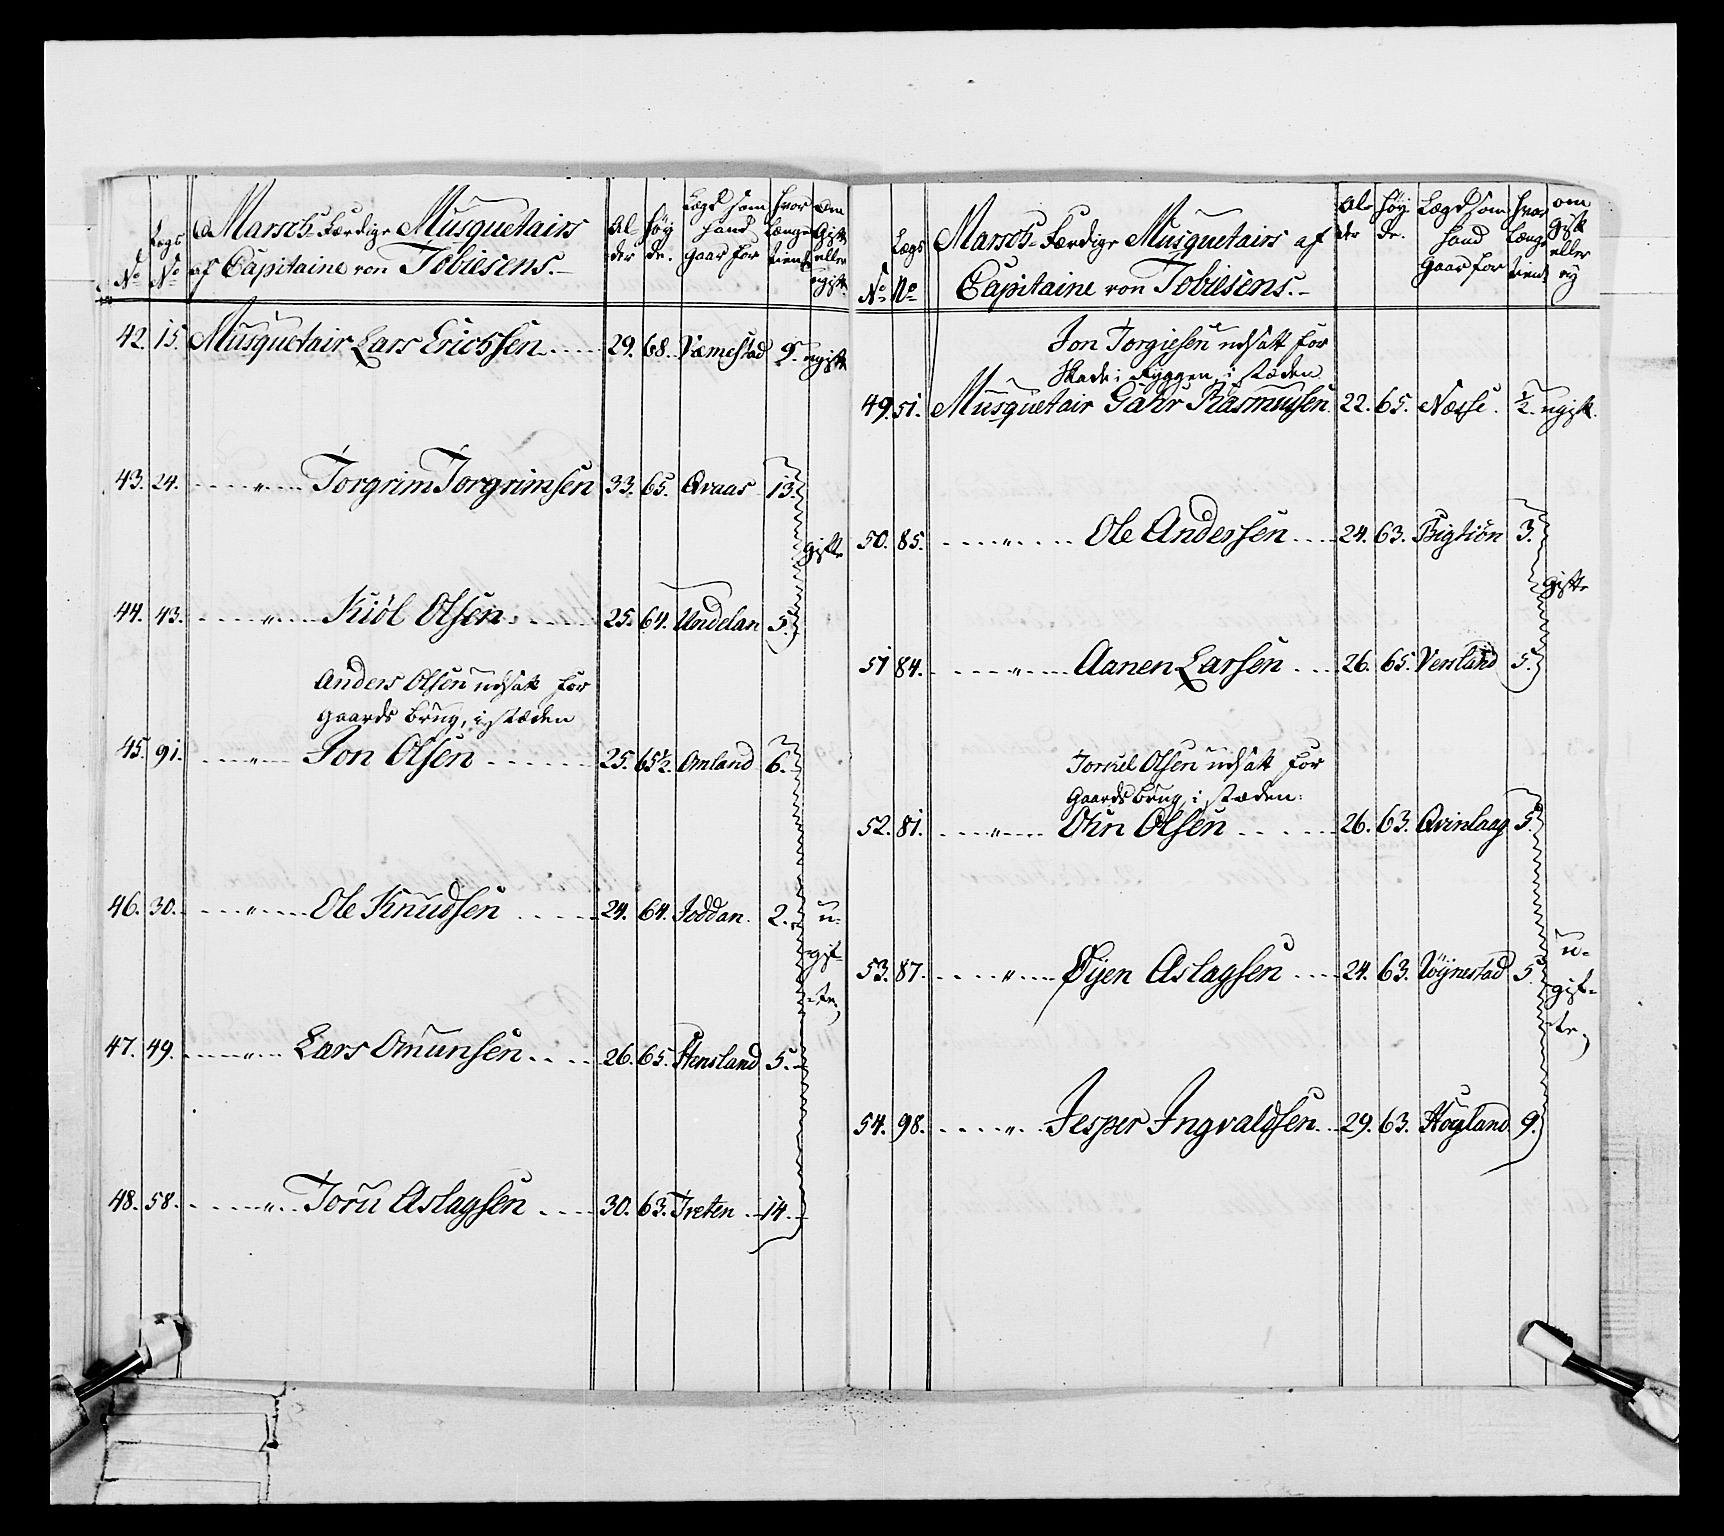 No
Legs No
Marsch Færdige Musquetairs
af Capitaine von Tobiesens.
Al-
der
Høy
de.
Legd som
hand
gaar for
hvor
længe
tient
om
gift
eller
ugift
42. 15. Musquetair Lars Erichsen 29. 68. Væmestad 9. ugift
43. 24. " Torgrim Torgrimsen 33. 65. Qvaas 13.
gifte
44. 43. " Kiöl Olsen 25. 64. Undelan 5.
Anders Olsen udsatt for
gaards brug, i stæden
45. 91. " Jon Olsen 25. 65½. Omland 6.
46. 30. " Ole Knudsen 24. 64. Joddan. 2.
u-
gif-
te,
47. 49. " Lars Omunsen 26. 65. Hensland 5.
48. 58. " Toru Aslagsen 30. 63. Treten 14.
No
Legs No
Marsch-Færdige Musquetairs af
Capitaine von Tobiesens.
Al-
der
Høy
de.
Lægd som
hand
gaar for
hvor
længe
tient
om
gift
eller
ey
Jon Torgiesen udsatt for
skade i Ryggen, i stæden
49. 51. Musquetair Gahr Rasmusen 22. 65. Næsse. ½. ugift.
50. 85. " Ole Anderssen 24. 63. Bigtión 3.
gifte
51 84. " Aanen Larsen 26. 65. Versland 5.
Torkel Olsen udsatt for
Gaards brug, i stæden:
52. 81. " Ohn Olsen 26. 63. Qvinlaag 5.
53. 87. " Öyen Aslagsen 24. 63. Vöynestad 5.
u-
gif-
te,
54. 98. " Jesper Ingvaldsen 29. 63. Høyland 9.